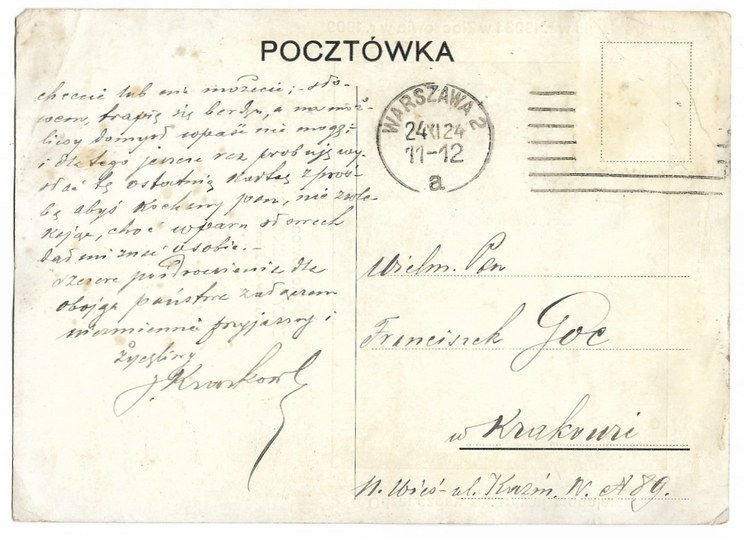 POCZTÓWKA
chcecie lub nie możecie; - sło-
wem, trapię się bardzo, a na moż-
liwy domysł wpaść nie mogę; -
i dla tego jeszcze raz próbuję wy-
słać tę ostatnią kartkę z proś-
bą abyś Kochany pan, nie zwle-
kając, choć w paru słowach
dał mi znać o sobie. -
szczere pozdrowienia dla
obojga państwa załączam
niezmiennie przyjazny i
życzliwy
WARSZAWA 2
24 XI 24
11-12
a
Wielm. Pan
Franciszek Goc
w Krakowie
N. Wieś - ul. Kazim. W. 89.